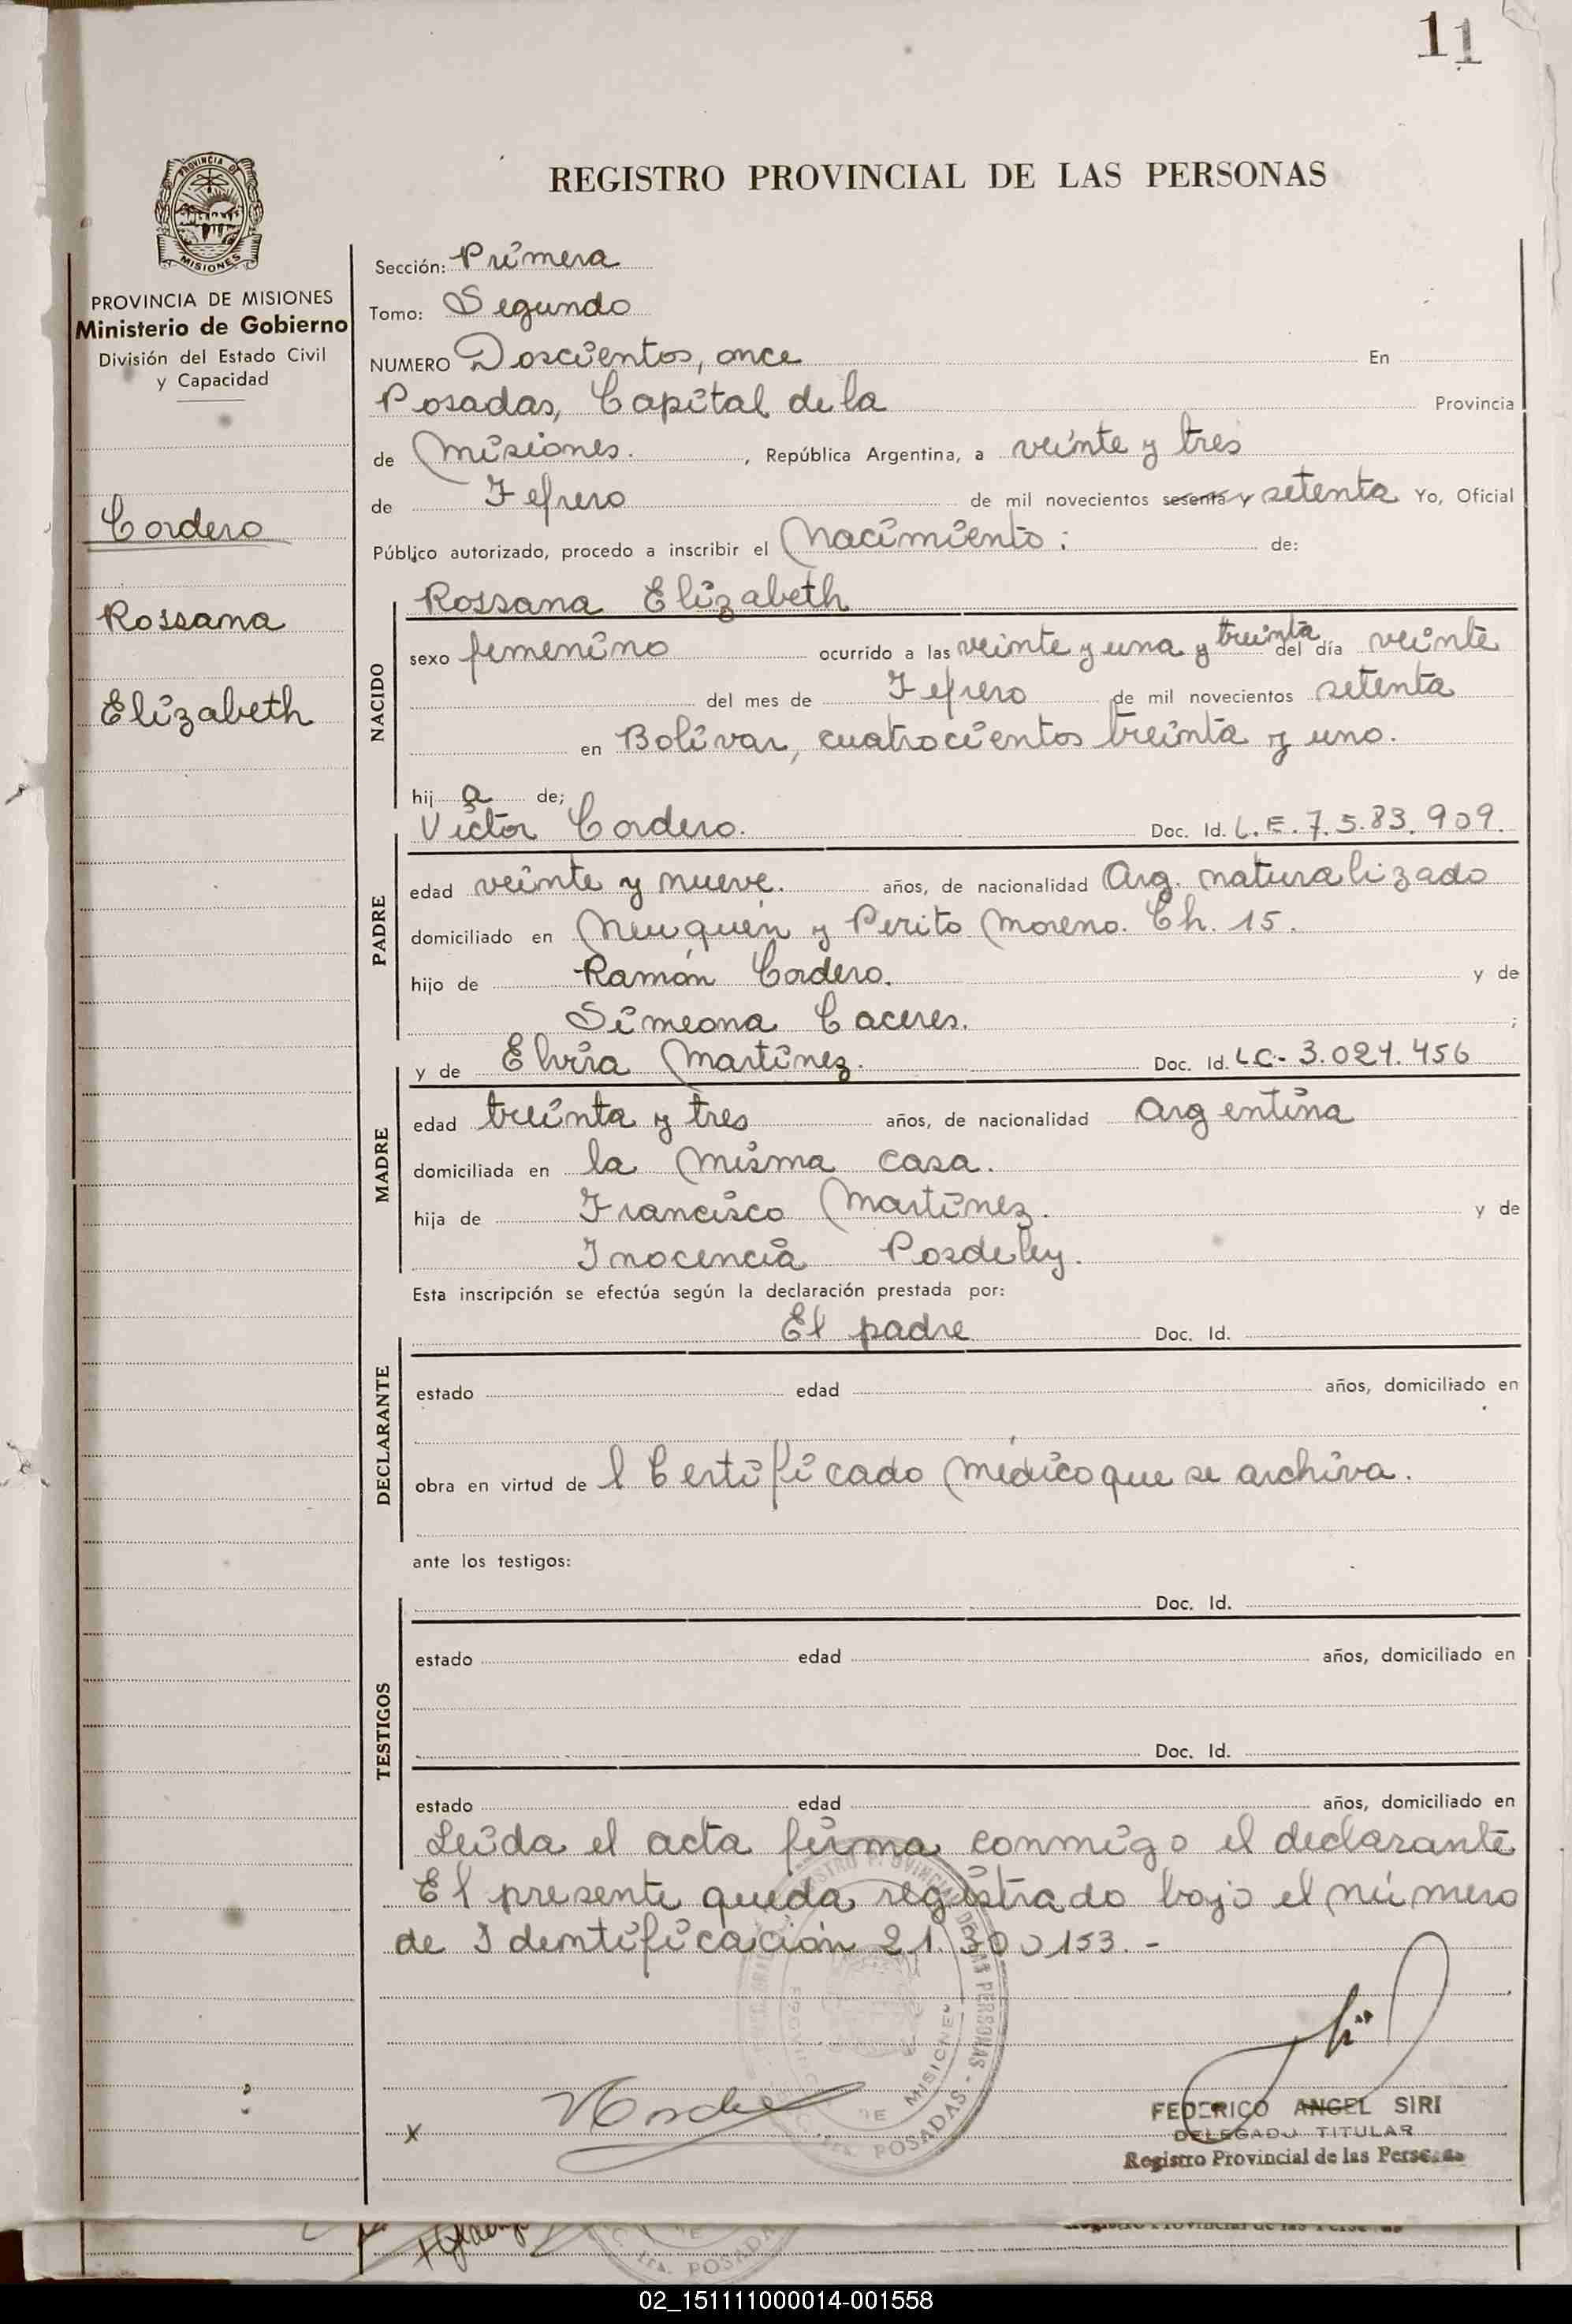 11
REGISTRO PROVINCIAL DE LAS PERSONAS
PROVINCIA DE
MISIONES
PROVINCIA DE MISIONES
Ministerio de Gobierno
División del Estado Civil
y Capacidad
Cordero
Rossana
Elizabeth
Sección: Primera
Tomo: Segundo
NUMERO Doscientos, once En
Posadas, Capital de la Provincia
de Misiones. , República Argentina, a veinte y tres
de Febrero de mil novecientos sesenta y setenta Yo, Oficial
Público autorizado, procedo a inscribir el Nacimiento: de:
NACIDO
Rossana Elizabeth
sexo femenino ocurrido a las veinte y una y treinta del día veinte
del mes de Febrero de mil novecientos setenta
en Bolívar, cuatrocientos treinta y uno.
hij a de;
PADRE
Victor Cordero. Doc. Id. L.E. 7.5.83.909.
edad veinte y nueve. años, de nacionalidad Arg. naturalizado
domiciliado en Neuquén y Perito Moreno. Ch. 15.
hijo de Ramón Cordero. y de
Simeona Caceres. ;
MADRE
y de Elvira Martínez. Doc. Id. LC- 3.021.456
edad treinta y tres años, de nacionalidad Argentina
domiciliada en la misma casa.
hija de Francisco Martínez. y de
Inocencia Posdeley.
Esta inscripción se efectúa según la declaración prestada por:
DECLARANTE
El padre Doc. Id.
estado edad años, domiciliado en
obra en virtud de l Certificado médico que se archiva.
ante los testigos:
TESTIGOS
Doc. Id.
estado edad años, domiciliado en
Doc. Id.
estado edad años, domiciliado en
Leida el acta firma conmigo el declarante
El presente queda registrado bajo el número
de Identificación 21.300153.-
PERSONAS - POSADAS
MISIONES
x
FEDERICO ANGEL SIRI
DELEGADO TITULAR
Registro Provincial de las Personas
POSADA
02_151111000014-001558